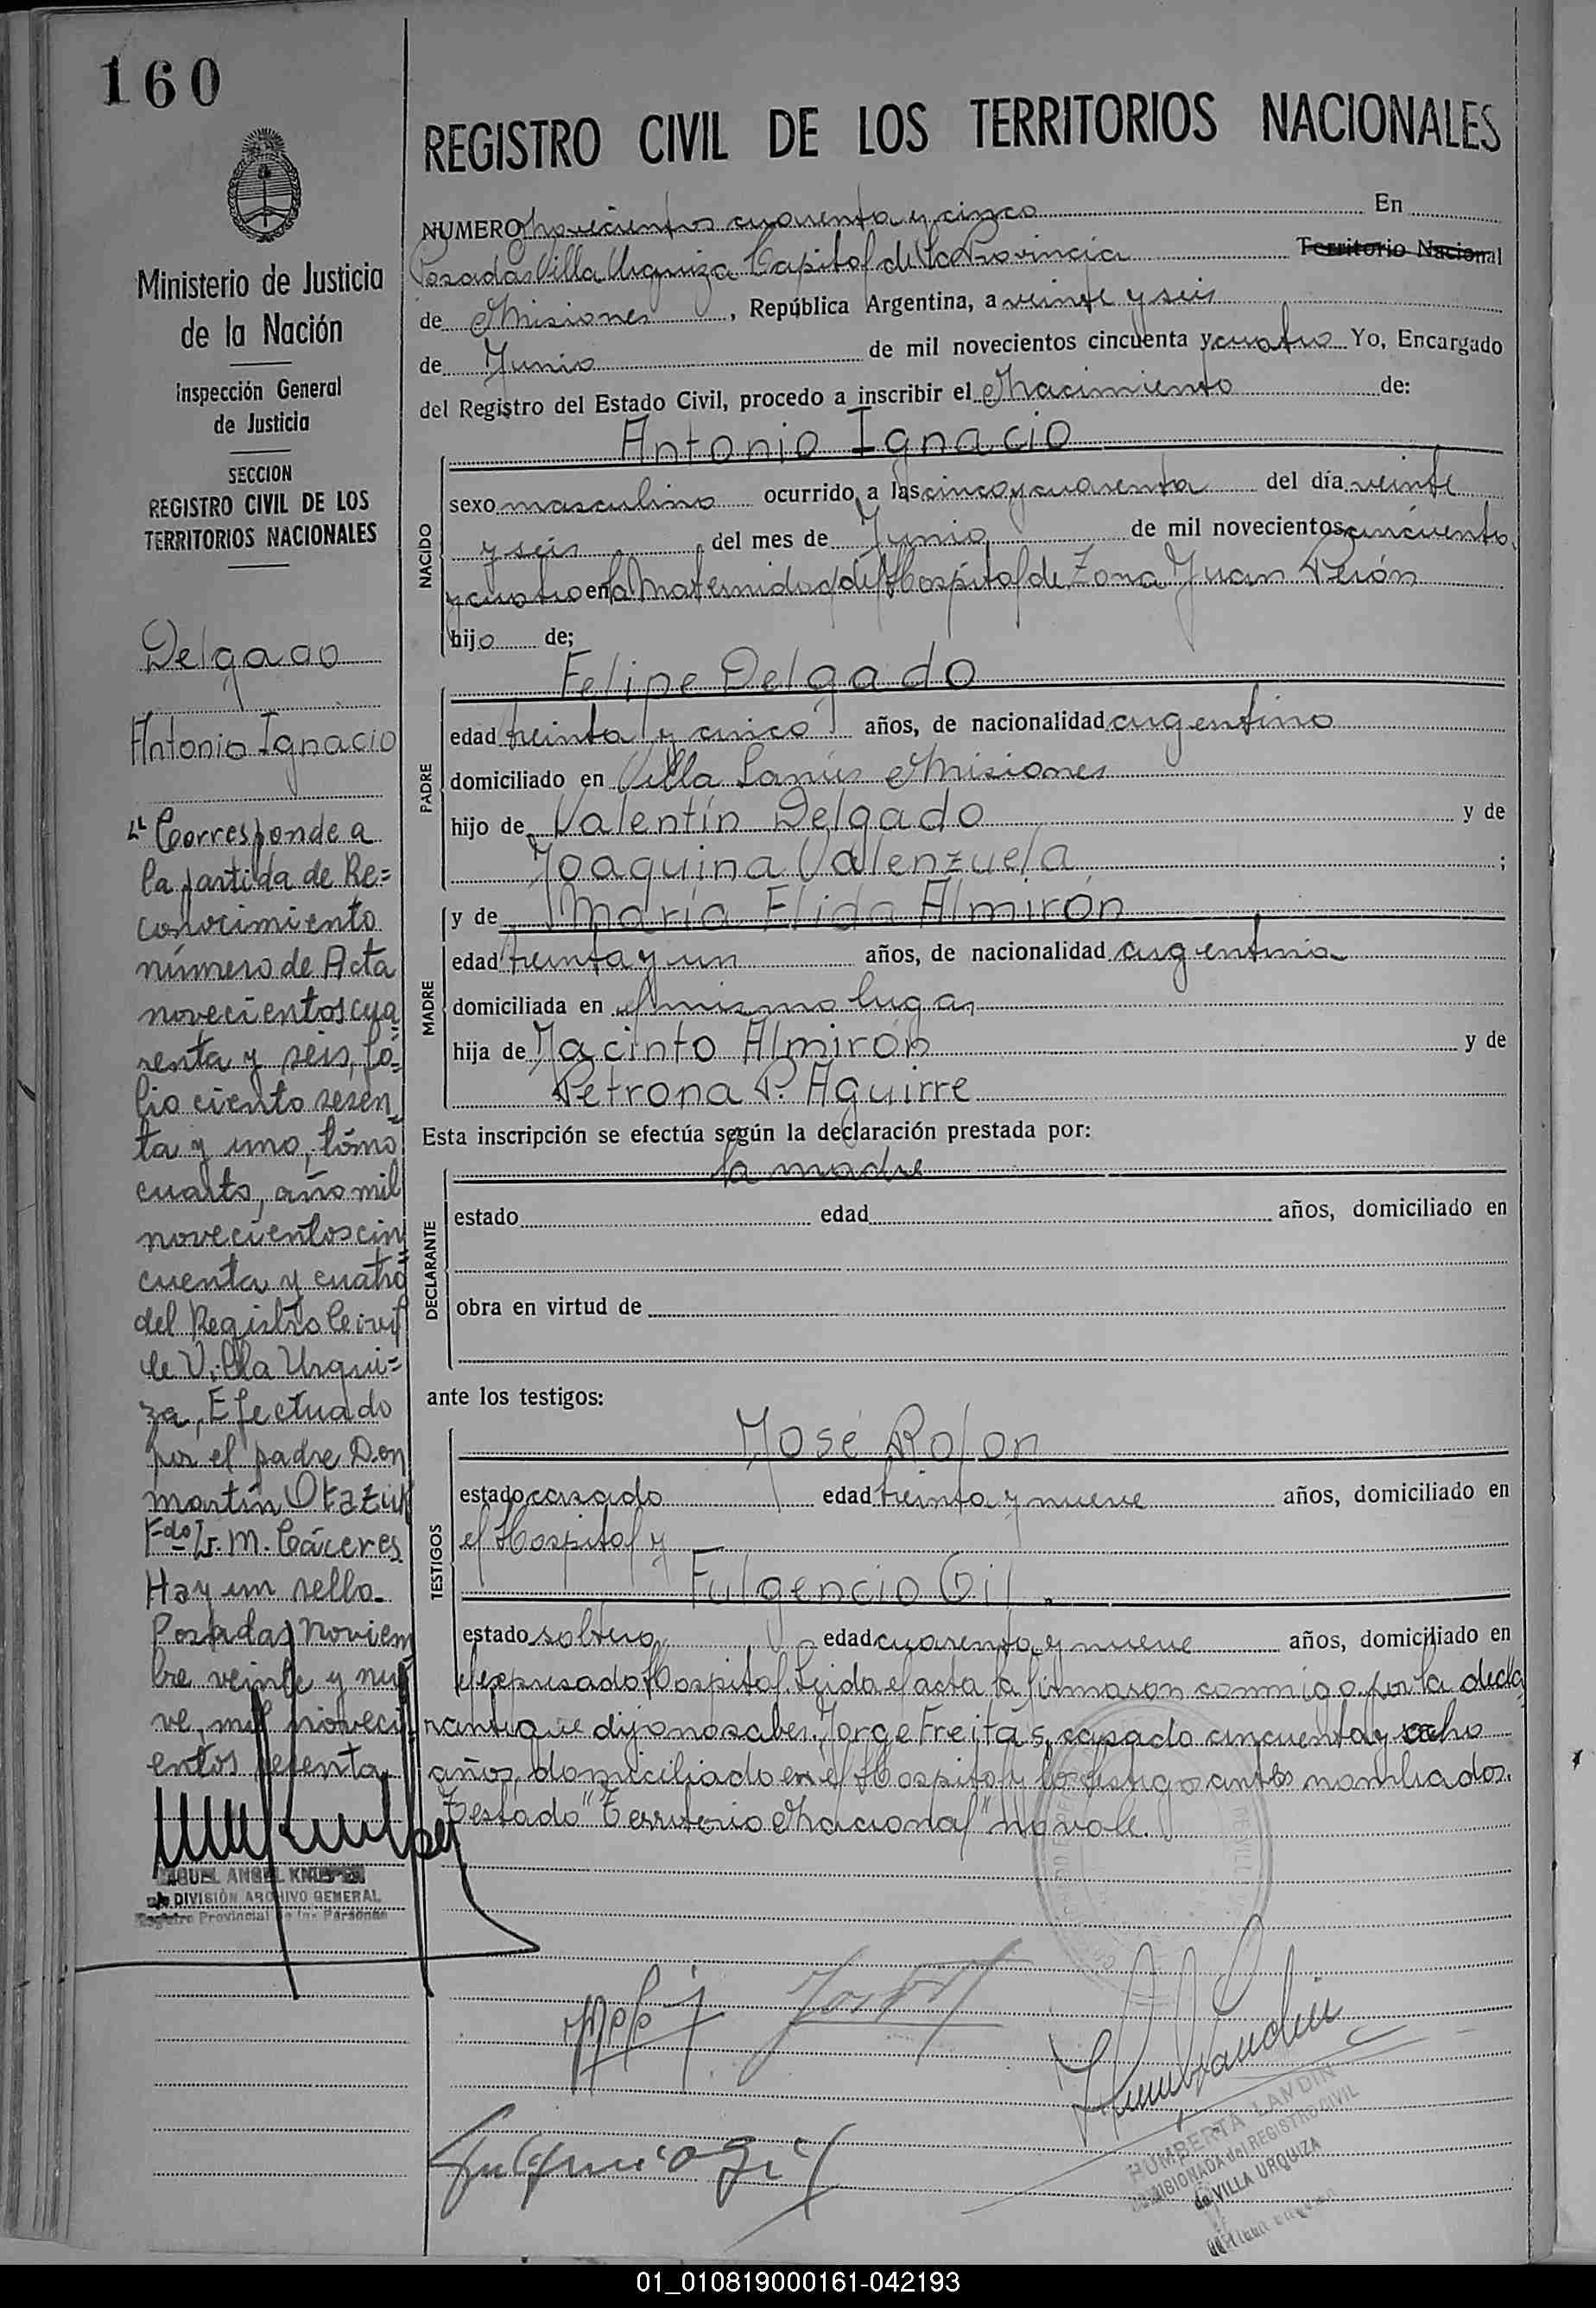 160
REGISTRO CIVIL DE LOS TERRITORIOS NACIONALES
Ministerio de Justicia
de la Nación
Inspección General
de Justicia
SECCION
REGISTRO CIVIL DE LOS
TERRITORIOS NACIONALES
Delgado
Antonio Ignacio
Corresponde a
la partida de Re=
conocimiento
número de Acta
novecientos cua=
renta y seis, fó=
lio ciento sesen=
ta y uno, tómo
cuarto, año mil
novecientos cin=
cuenta y cuatro
del Registro Civil
de Villa Urqui=
za, Efectuado
por el padre Don
Martín Otazú
Fdo M. Cáceres
Hay un sello.
Posadas Noviem
bre veinte y nue
ve, mil noveci
entos sesenta.
MIGUEL ANGEL
DIVISIÓN ARCHIVO GENERAL
Registro Provincial de las Personas
NUMERO Novecientos cuarenta y cinco En
Posadas Villa Urquiza Capital de la Provincia Territorio Nacional
de Misiones, República Argentina, a veinte y seis
de Junio de mil novecientos cincuenta y cuatro Yo, Encargado
del Registro del Estado Civil, procedo a inscribir el Nacimiento de:
Antonio Ignacio
NACIDO
sexo masculino ocurrido a las cinco y cuarenta del día veinte
y seis del mes de Junio de mil novecientos cincuenta
y cuatro en la Maternidad del Hospital de Zona Juan Perón
hijo de;
Felipe Delgado
PADRE
edad treinta y cinco años, de nacionalidad argentino
domiciliado en Villa Lanús Misiones
hijo de Valentín Delgado y de
Joaquina Valenzuela;
MADRE
y de María Elida Almirón
edad treinta y un años, de nacionalidad argentina
domiciliada en el mismo lugar
hija de Jacinto Almirón y de
Petrona P. Aguirre
Esta inscripción se efectúa según la declaración prestada por:
la madre
DECLARANTE
estado edad años, domiciliado en
obra en virtud de
ante los testigos:
José Rolon
TESTIGOS
estado casado edad treinta y nueve años, domiciliado en
el Hospital y
Fulgencio Gil.
estado soltero edad cuarenta y nueve años, domiciliado en
el expresado Hospital. Leida el acta la firmaron conmigo por la decla
rante que dijo no saber. Jorge Freitas, casado cincuenta y ocho
años, domiciliado en el Hospital y los testigos antes nombrados.
Testado "Territorio Nacional" no vale.
Fulgencio Gil
HUMBERTA LANDIN
COMISIONADA del REGISTRO CIVIL
de VILLA URQUIZA
01_010819000161-042193